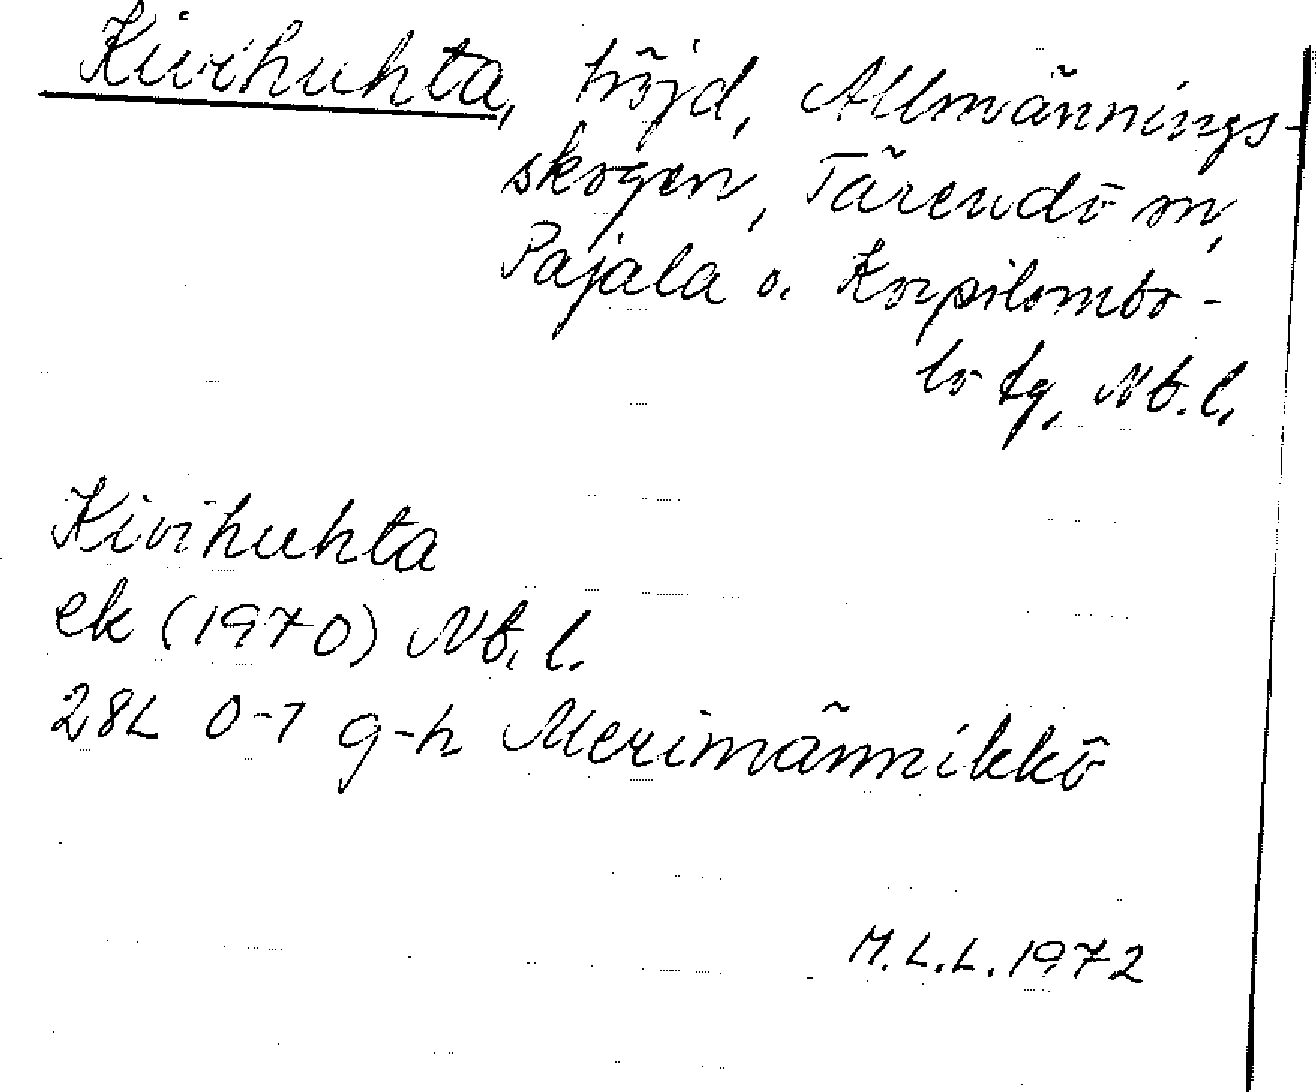 Kivihuhta, höjd, Allmännings-
skogen, Tärendö sn,
Pajala o. Korpilombo-
lo tg, Nb.l.
Kivihuhta
ek (1970) Nb.l.
28L 0-1 g-h Merimännikkö
M.L.L. 1972